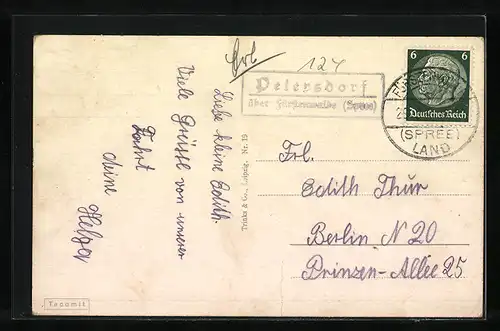 124
Petersdorf
über Fürstenwalde (Spree)
6 6
Deutsches Reich
(SPREE)
LAND
Liebe kleine Edith.
Viele Grüße von unserer
Fahrt
deine Helga
Trinks & Co., Leipzig. Nr. 19
Frl.
Edith Thur
Berlin N 20
Prinzen-Allee 25
Tecomit